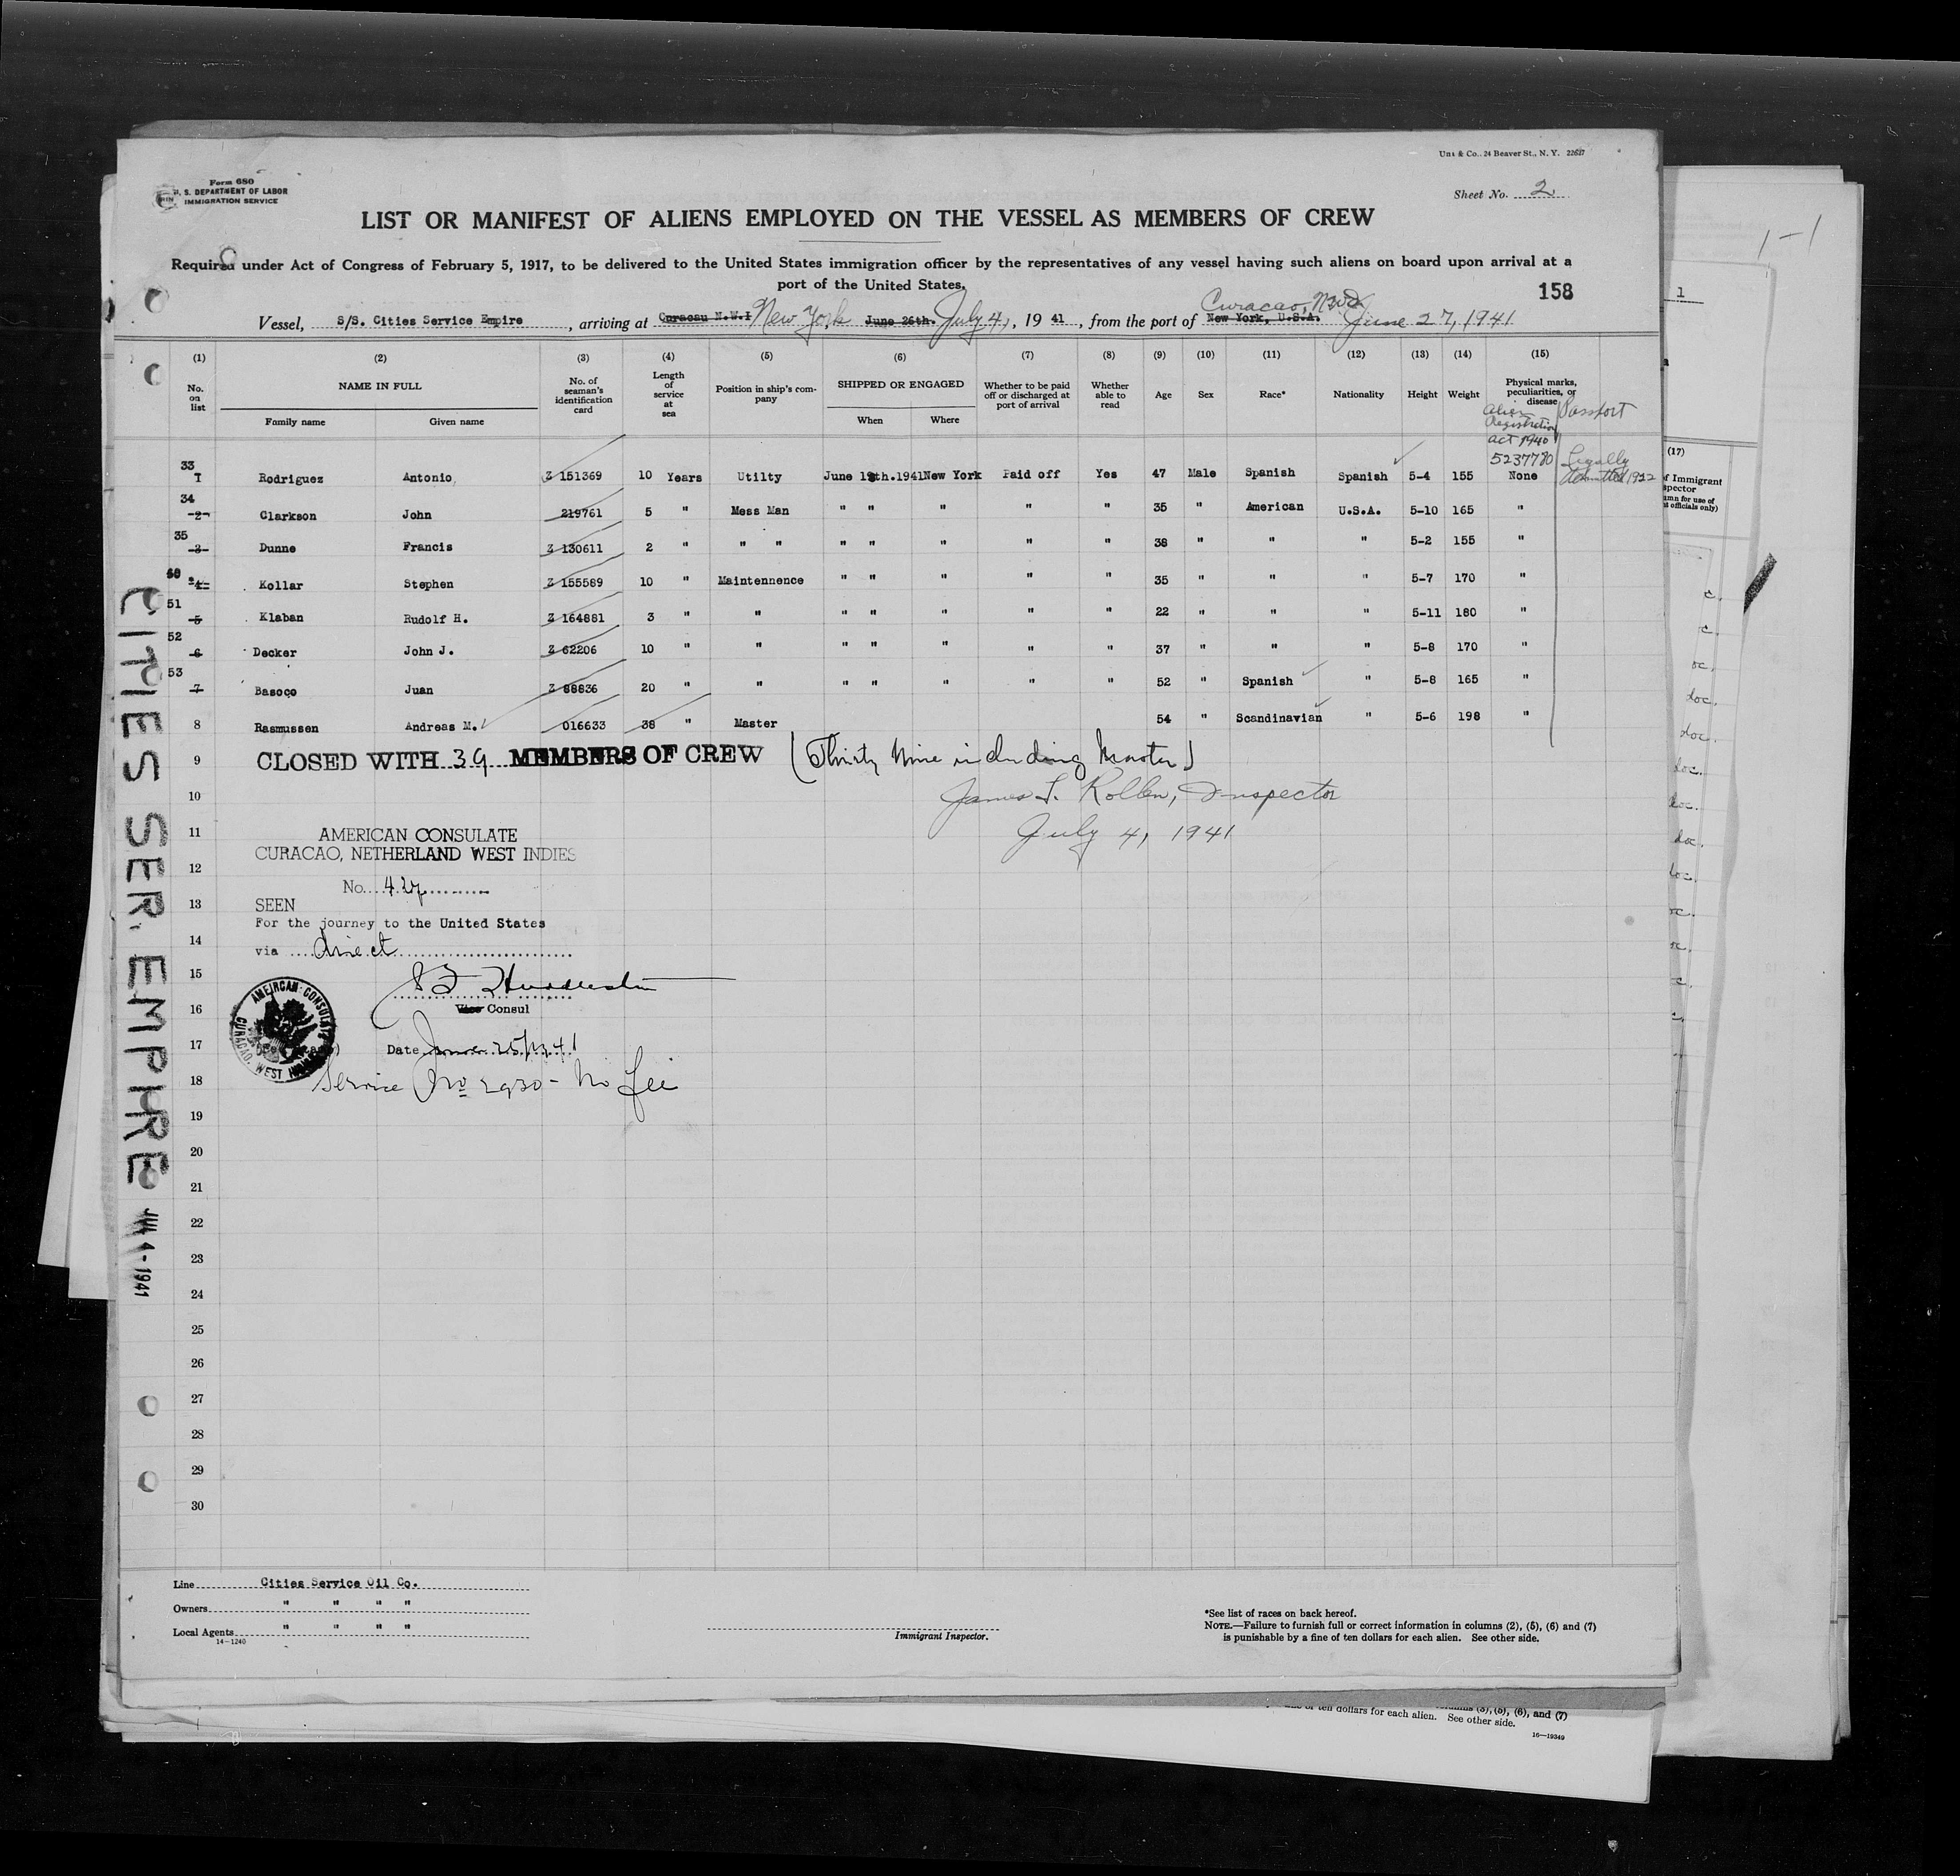 Uns & Co., 24 Beaver St., N. Y. 22637
Form 680
U. S. DEPARTMENT OF LABOR
IMMIGRATION SERVICE
Sheet No. 2
LIST OR MANIFEST OF ALIENS EMPLOYED ON THE VESSEL AS MEMBERS OF CREW
Required under Act of Congress of February 5, 1917, to be delivered to the United States immigration officer by the representatives of any vessel having such aliens on board upon arrival at a
port of the United States.
158
Vessel, S/S. Cities Service Empire, arriving at Curacau N.W.I New York June 26th. July 4, 1941, from the port of New York, U.S.A. Curacao, N.W.I. June 27, 1941
(1) (2) (3) (4) (5) (6) (7) (8) (9) (10) (11) (12) (13) (14) (15)
No. on list
NAME IN FULL
Family name Given name
No. of seaman's identification card
Length of service at sea
Position in ship's company
SHIPPED OR ENGAGED
When Where
Whether to be paid off or discharged at port of arrival
Whether able to read
Age Sex Race* Nationality Height Weight
Physical marks, peculiarities, or disease
Alien Registration act 1940 Passport
5237780 Legally admitted 1922
33 1 Rodriguez Antonio Z 151369 10 Years Utilty June 19th.1941 New York Paid off Yes 47 Male Spanish Spanish 5-4 155 None
34 2 Clarkson John 219761 5 " Mess Man " " " " " 35 " American U.S.A. 5-10 165 "
35 3 Dunne Francis Z 130611 2 " " " " " " " " 38 " " " 5-2 155 "
50 4 Kollar Stephen Z 155589 10 " Maintennence " " " " " 35 " " " 5-7 170 "
51 5 Klaban Rudolf H. Z 164881 3 " " " " " " " 22 " " " 5-11 180 "
52 6 Decker John J. Z 62206 10 " " " " " " " 37 " " " 5-8 170 "
53 7 Basoco Juan Z 88836 20 " " " " " " " 52 " Spanish " 5-8 165 "
8 Rasmussen Andreas M. 016633 38 " Master 54 " Scandinavian " 5-6 198 "
9 CLOSED WITH 39 MEMBERS OF CREW (Thirty Nine including Master)
10 James T. Rollen, Inspector
11 July 4, 1941
AMERICAN CONSULATE
CURACAO, NETHERLAND WEST INDIES
12
No. 427
13 SEEN
For the journey to the United States
14
via direct
15
Vice Consul
16
AMERICAN CONSULATE CURACAO, WEST INDIES
17 Date June 25/1941
18 Service No 2930 - No fee
19
20
21
22
23
24
25
26
27
28
29
30
CITIES SER. EMPIRE JUL 4-1941
Line Cities Service Oil Co.
Owners " " " "
Local Agents " " " "
14-1240
Immigrant Inspector.
*See list of races on back hereof.
NOTE.—Failure to furnish full or correct information in columns (2), (5), (6) and (7)
is punishable by a fine of ten dollars for each alien. See other side.
1-1
1
(17)
of Immigrant
officials only)
(3), (5), (6), and (7)
of ten dollars for each alien. See other side.
16-19349